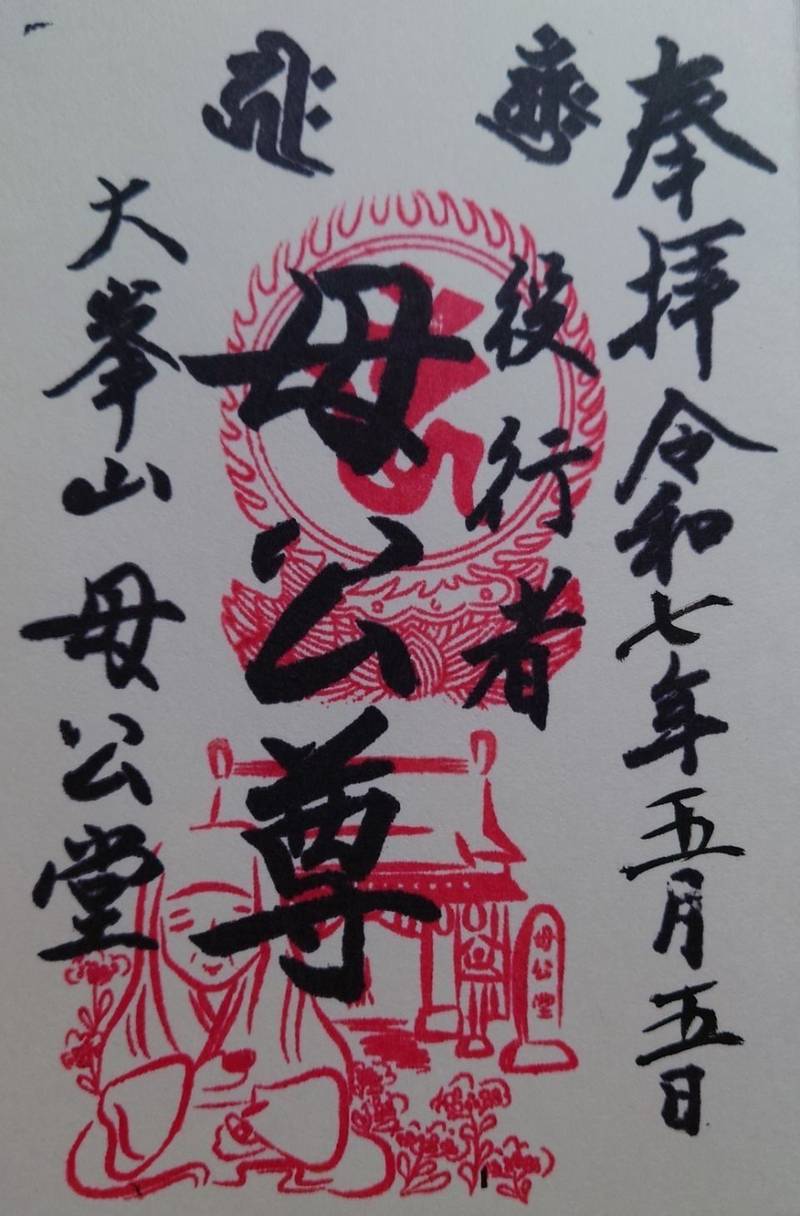 奉拝 令和七年五月五日
役行者
母公尊
大峯山 母公堂
母公堂